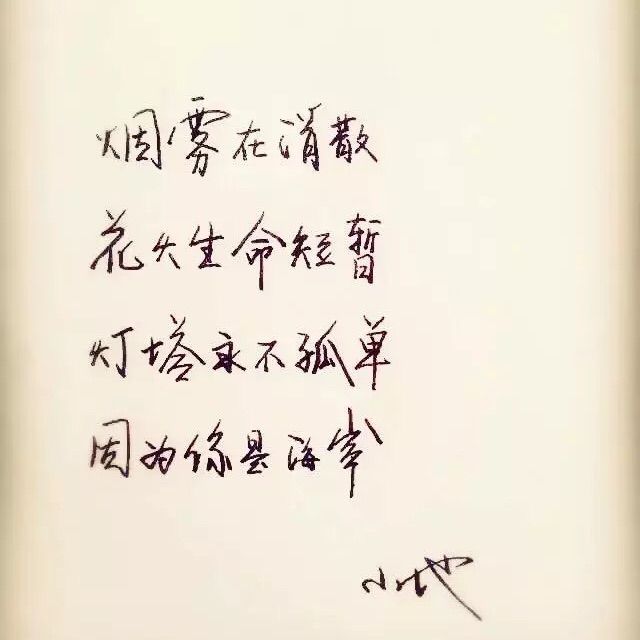 烟雾在消散
花火生命短暂
灯塔永不孤单
因为你是海岸
小地